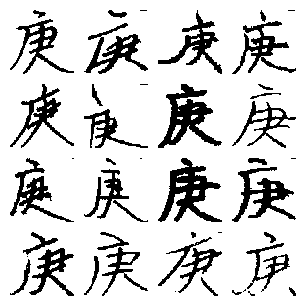 庚庚庚庚
庚庚庚庚
庚庚庚庚
庚庚庚庚